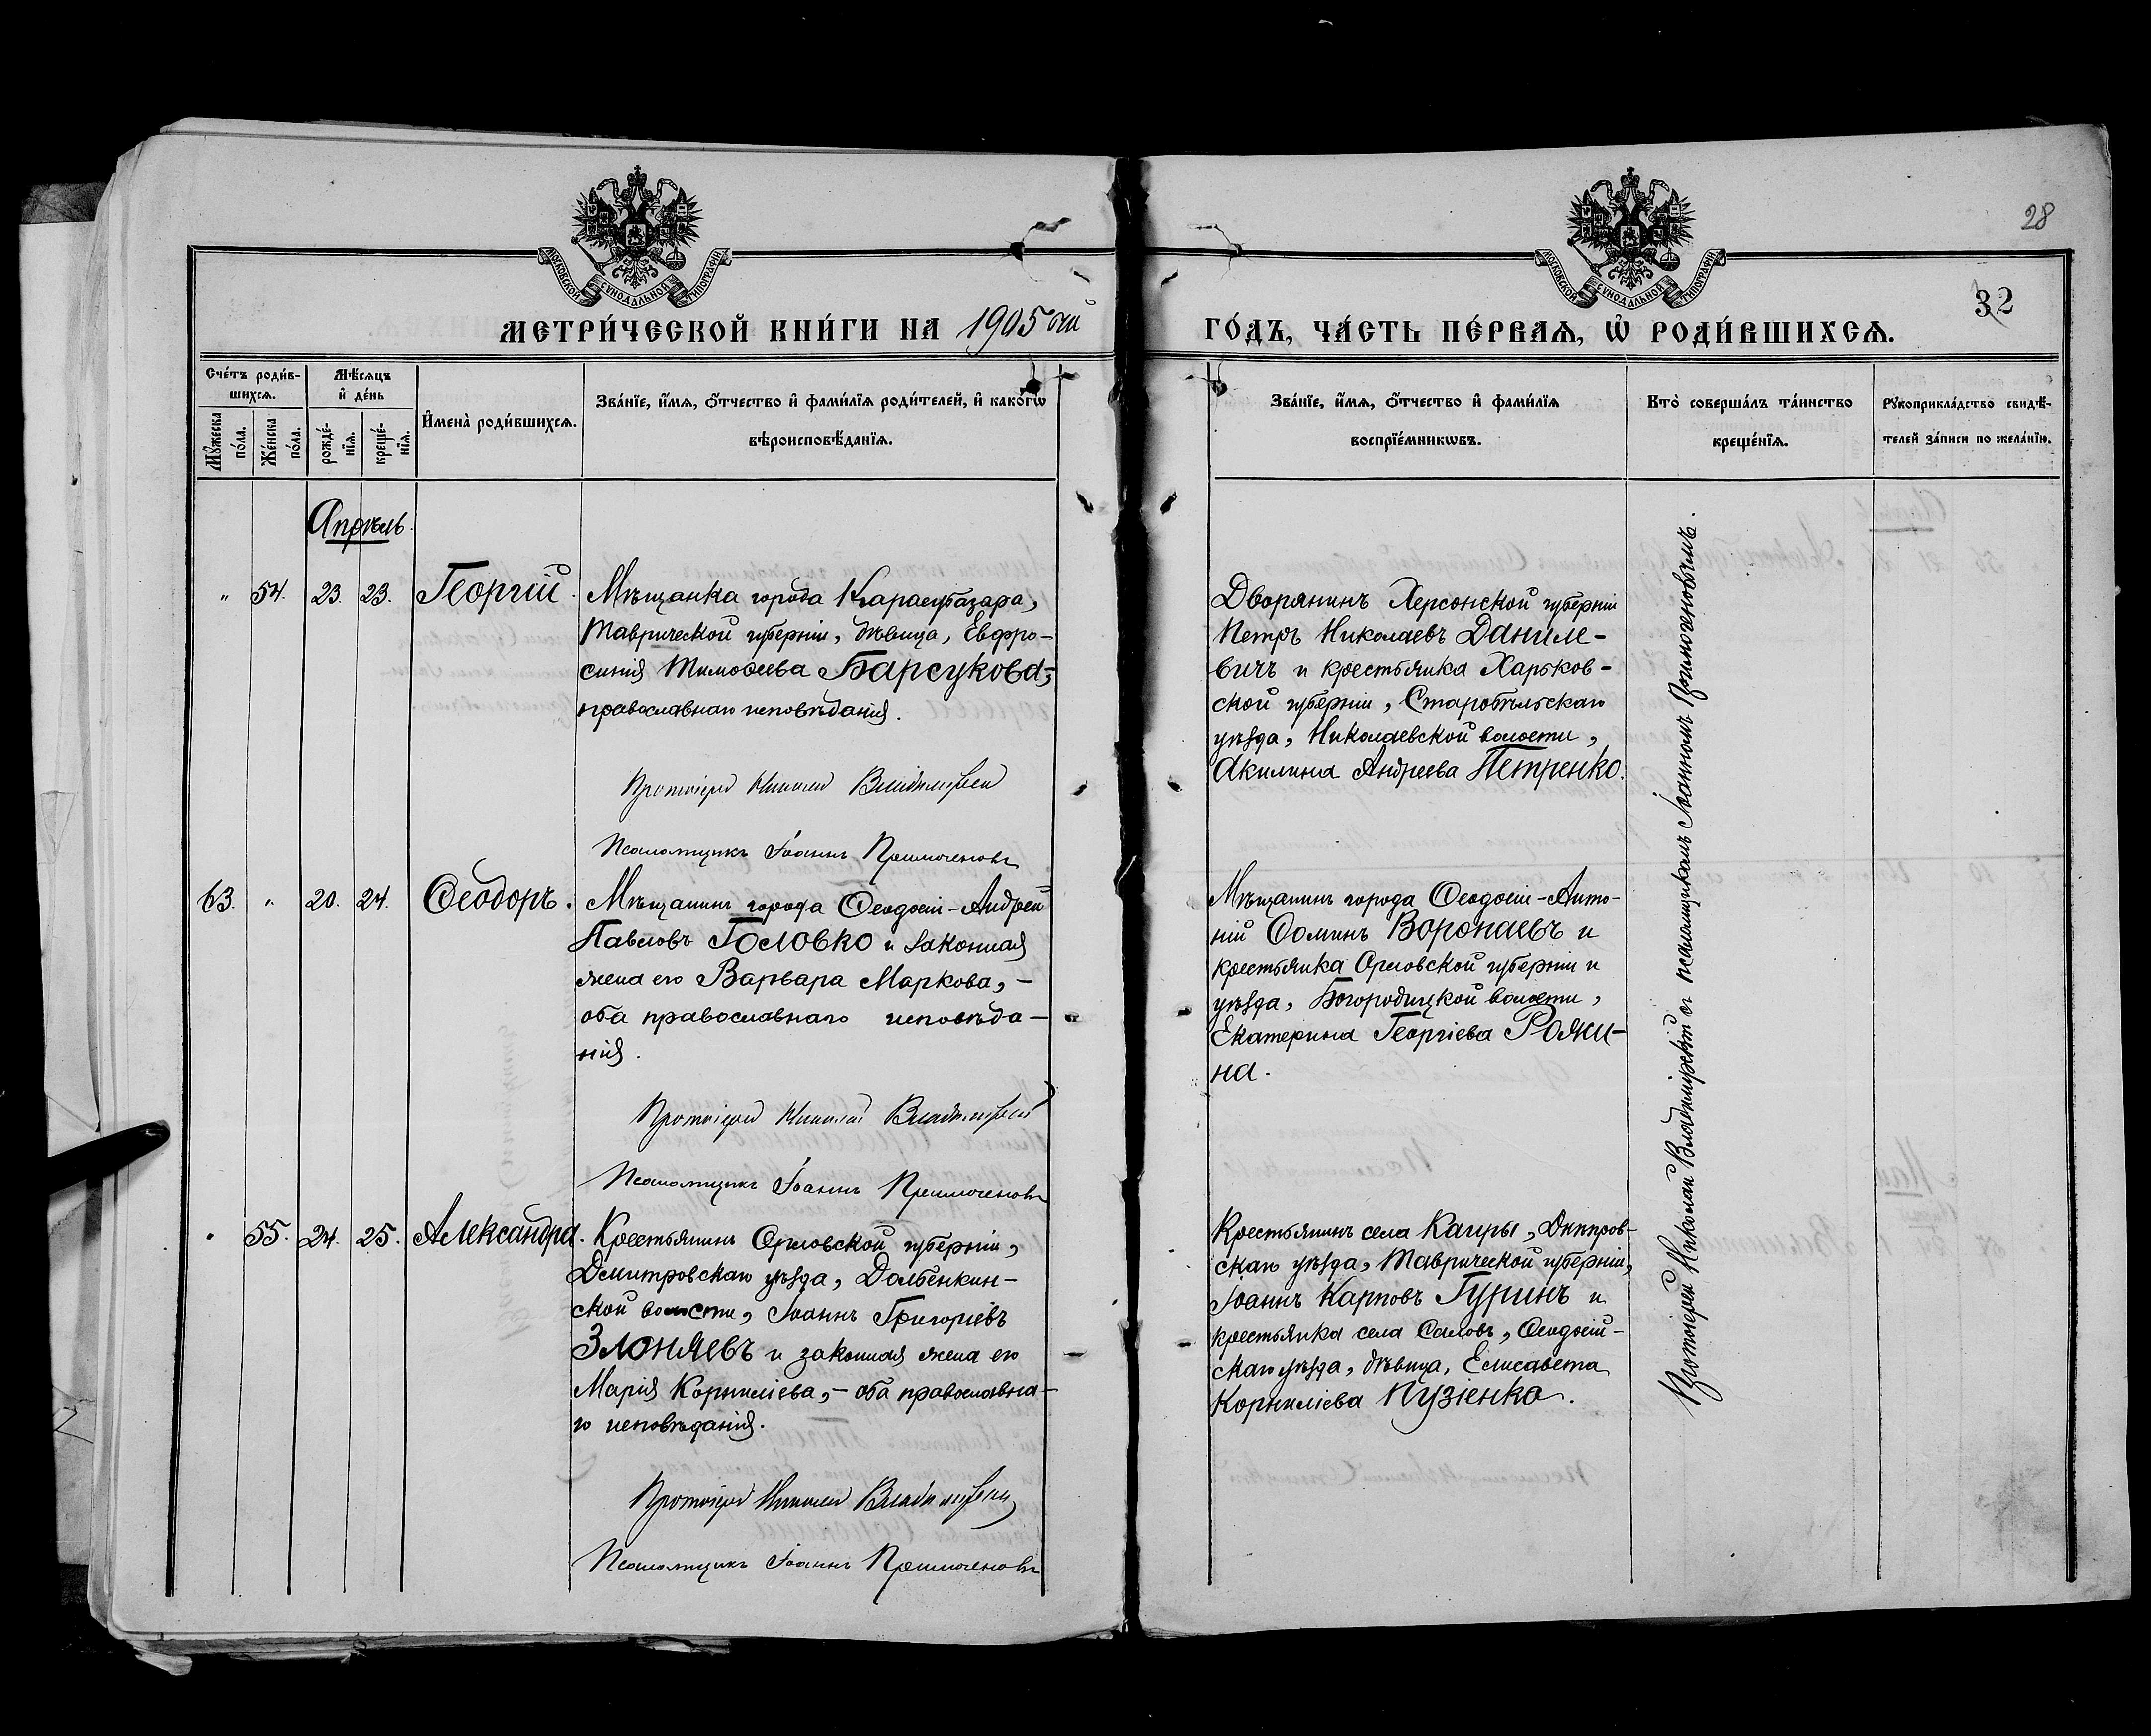 28
32
МОСКОВСКОЙ СѴНОДАЛЬНОЙ ТИПОГРАФІИ
МОСКОВСКОЙ СѴНОДАЛЬНОЙ ТИПОГРАФІИ
МЕТРИ́ЧЕСКОЙ КНИ́ГИ НА 1905 ый
ГО́ДЪ, ЧА́СТЬ ПЕ́РВАЯ, Ѿ РОДИ́ВШИХСѦ.
Сче́тъ роди́в-
шихсѧ.
Мꙋ́жеска по́ла.
Же́нска по́ла.
Мѣ́сѧцъ
и҆ де́нь
рожде́-
нїѧ.
креще́-
нїѧ.
И҆мена̀ роди́вшихсѧ.
Зва́нїе, и҆́мѧ, ѻ҆́тчество и҆ фами́лїѧ роди́телей, и҆ како́гѡ
вѣроисповѣ́данїѧ.
Зва́нїе, и҆́мѧ, ѻ҆́тчество и҆ фами́лїѧ
воспрїе́мникѡвъ.
Кто̀ соверша́лъ та́инство
креще́нїѧ.
Рꙋкоприкла́дство свидѣ́-
телей за́писи по жела́нїю.
Апрѣль.
" 54. 23. 23. Георгій.
Мѣщанка города Карасубазара,
Таврической губерніи, дѣвица, Евфро-
синія Тимоѳеева Барсукова,
православнаго исповѣданія.
Протоіерей Николай Владимірскій
Псаломщикъ Іоаннъ Примоченовъ
Дворянинъ Херсонской губерніи
Петръ Николаевъ Даниле-
вичъ и крестьянка Харьков-
ской губерніи, Старобѣльскаго
уѣзда, Николаевской волости,
Акилина Андреева Петренко.
63. " 20. 24. Ѳеодоръ.
Мѣщанинъ города Ѳеодосіи-Андрей
Павловъ Головко и законная
жена его Варвара Маркова, -
оба православнаго исповѣда-
нія.
Протоіерей Николай Владимірскій
Псаломщикъ Іоаннъ Примоченовъ
Мѣщанинъ города Ѳеодосіи-Анто-
ній Ѳоминъ Воропаевъ и
крестьянка Орловской губерніи и
уѣзда, Богородицкой волости,
Екатерина Георгіева Рожи-
на.
" 55. 24. 25. Александра.
Крестьянинъ Орловской губерніи,
Дмитровскаго уѣзда, Долбенкин-
ской волости, Іоаннъ Григоріевъ
Злоняевъ и законная жена его
Марія Корниліева, - оба православна-
го исповѣданія.
Протоіерей Николай Владимірскій
Псаломщикъ Іоаннъ Примоченовъ
Крестьянинъ села Каиры, Днѣпров-
скаго уѣзда, Таврической губерніи,
Іоаннъ Карповъ Гуринъ и
крестьянка села Саловъ, Ѳеодосій-
скаго уѣзда, дѣвица, Елисавета
Корниліева Пузіенко.
Протоіерей Николай Владимірскій съ псаломщикомъ Іоанномъ Примоченовымъ.